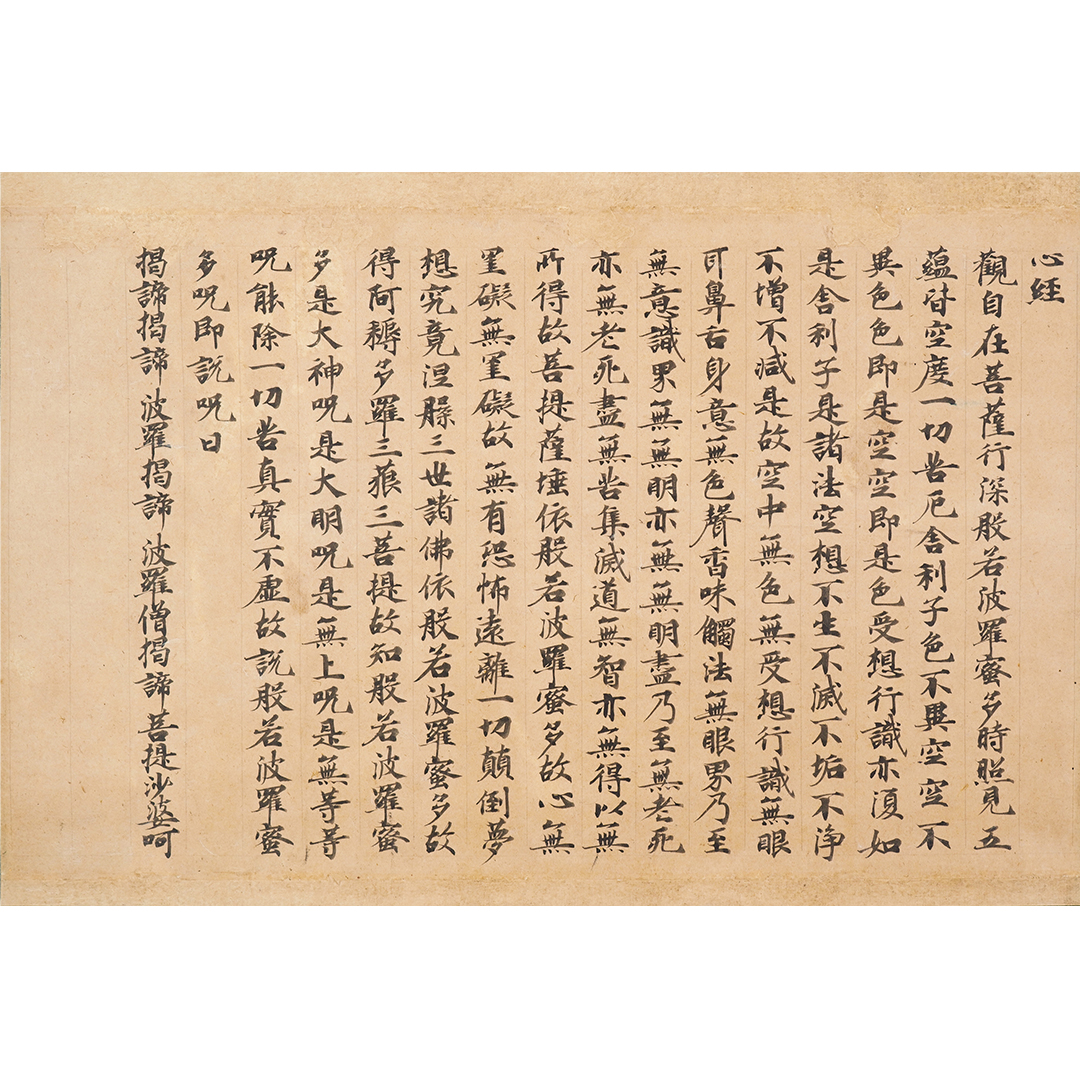 心経
觀自在菩薩行深般若波羅蜜多時照見五
蘊皆空度一切苦厄舎利子色不異空空不
異色色即是空空即是色受想行識亦須如
是舎利子是諸法空想不生不滅不垢不浄
不増不減是故空中無色無受想行識無眼
耳鼻舌身意無色聲香味觸法無眼界乃至
無意識界無無明亦無無明盡乃至無老死
亦無老死盡無苦集滅道無智亦無得以無
所得故菩提薩埵依般若波羅蜜多故心無
罣礙無罣礙故無有恐怖遠離一切顛倒夢
想究竟涅槃三世諸佛依般若波羅蜜多故
得阿耨多羅三藐三菩提故知般若波羅蜜
多是大神呪是大明呪是無上呪是無等等
呪能除一切苦真實不虚故説般若波羅蜜
多呪即説呪曰
揭諦揭諦波羅揭諦波羅僧揭諦菩提沙婆呵